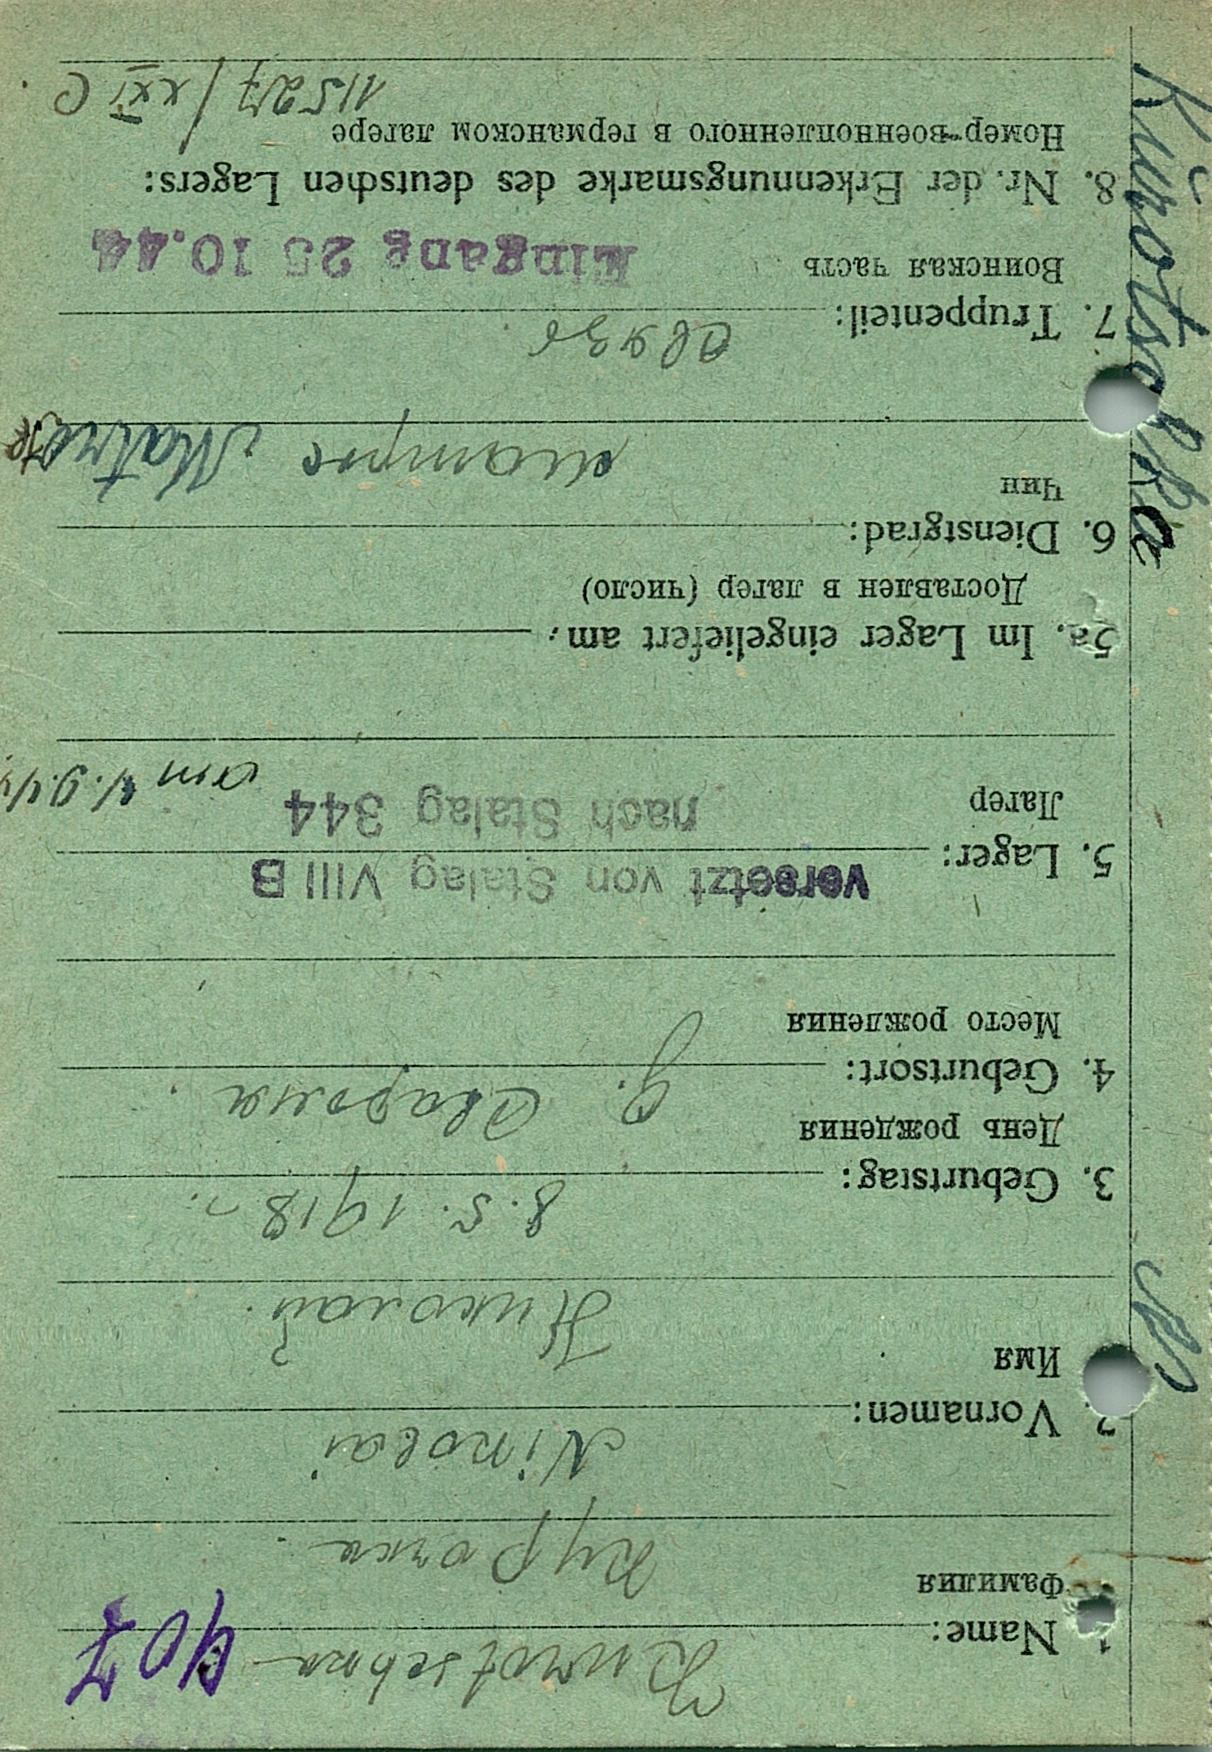 407
1. Name: Kurotschka
Фамилия Курочка.
2. Vornamen: Nikolai
Имя Николай.
3. Geburtstag: 8.5.1918 г.
День рождения
4. Geburtsort:
Место рождения
5. Lager: versetzt von Stalag VIII B
Лагер nach Stalag 344
am 4.9.44
5a. Im Lager eingeliefert am:
Доставлен в лагер (число)
6. Dienstgrad:
Чин матрос Matrose
7. Truppenteil: связь
Воинская часть Eingang 25 10.44
8. Nr. der Erkennungsmarke des deutschen Lagers:
Номер военнопленного в германском лагере
11527/XXI C.
N
Kurotschka